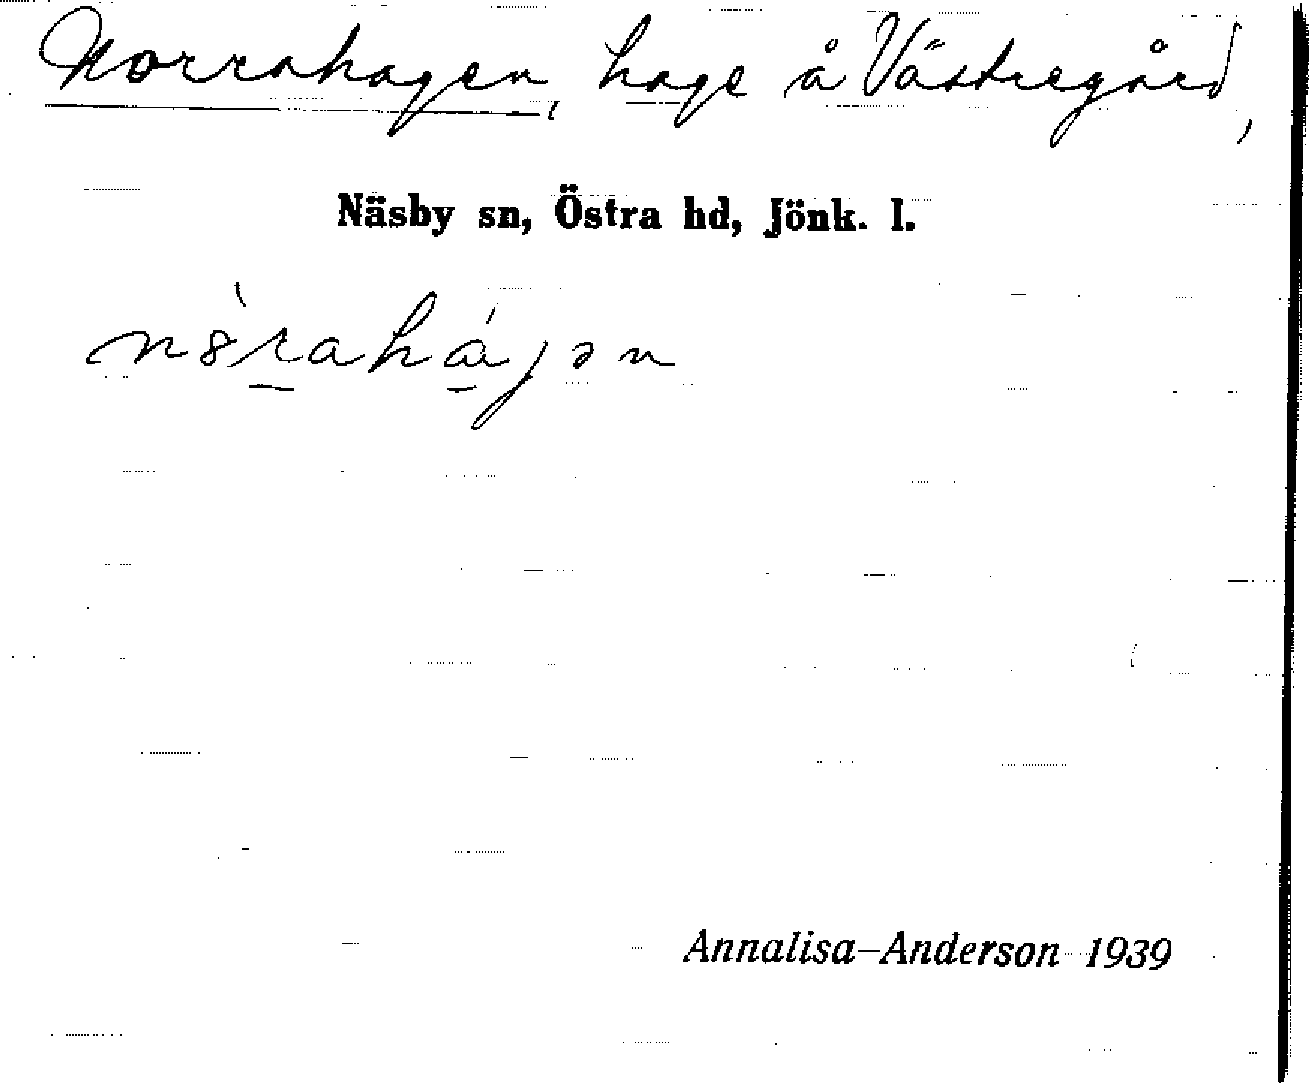 Norrahagen, hage å Västregård,
Näsby sn, Östra hd, Jönk. l.
n8̀rahájən
Annalisa Anderson 1939